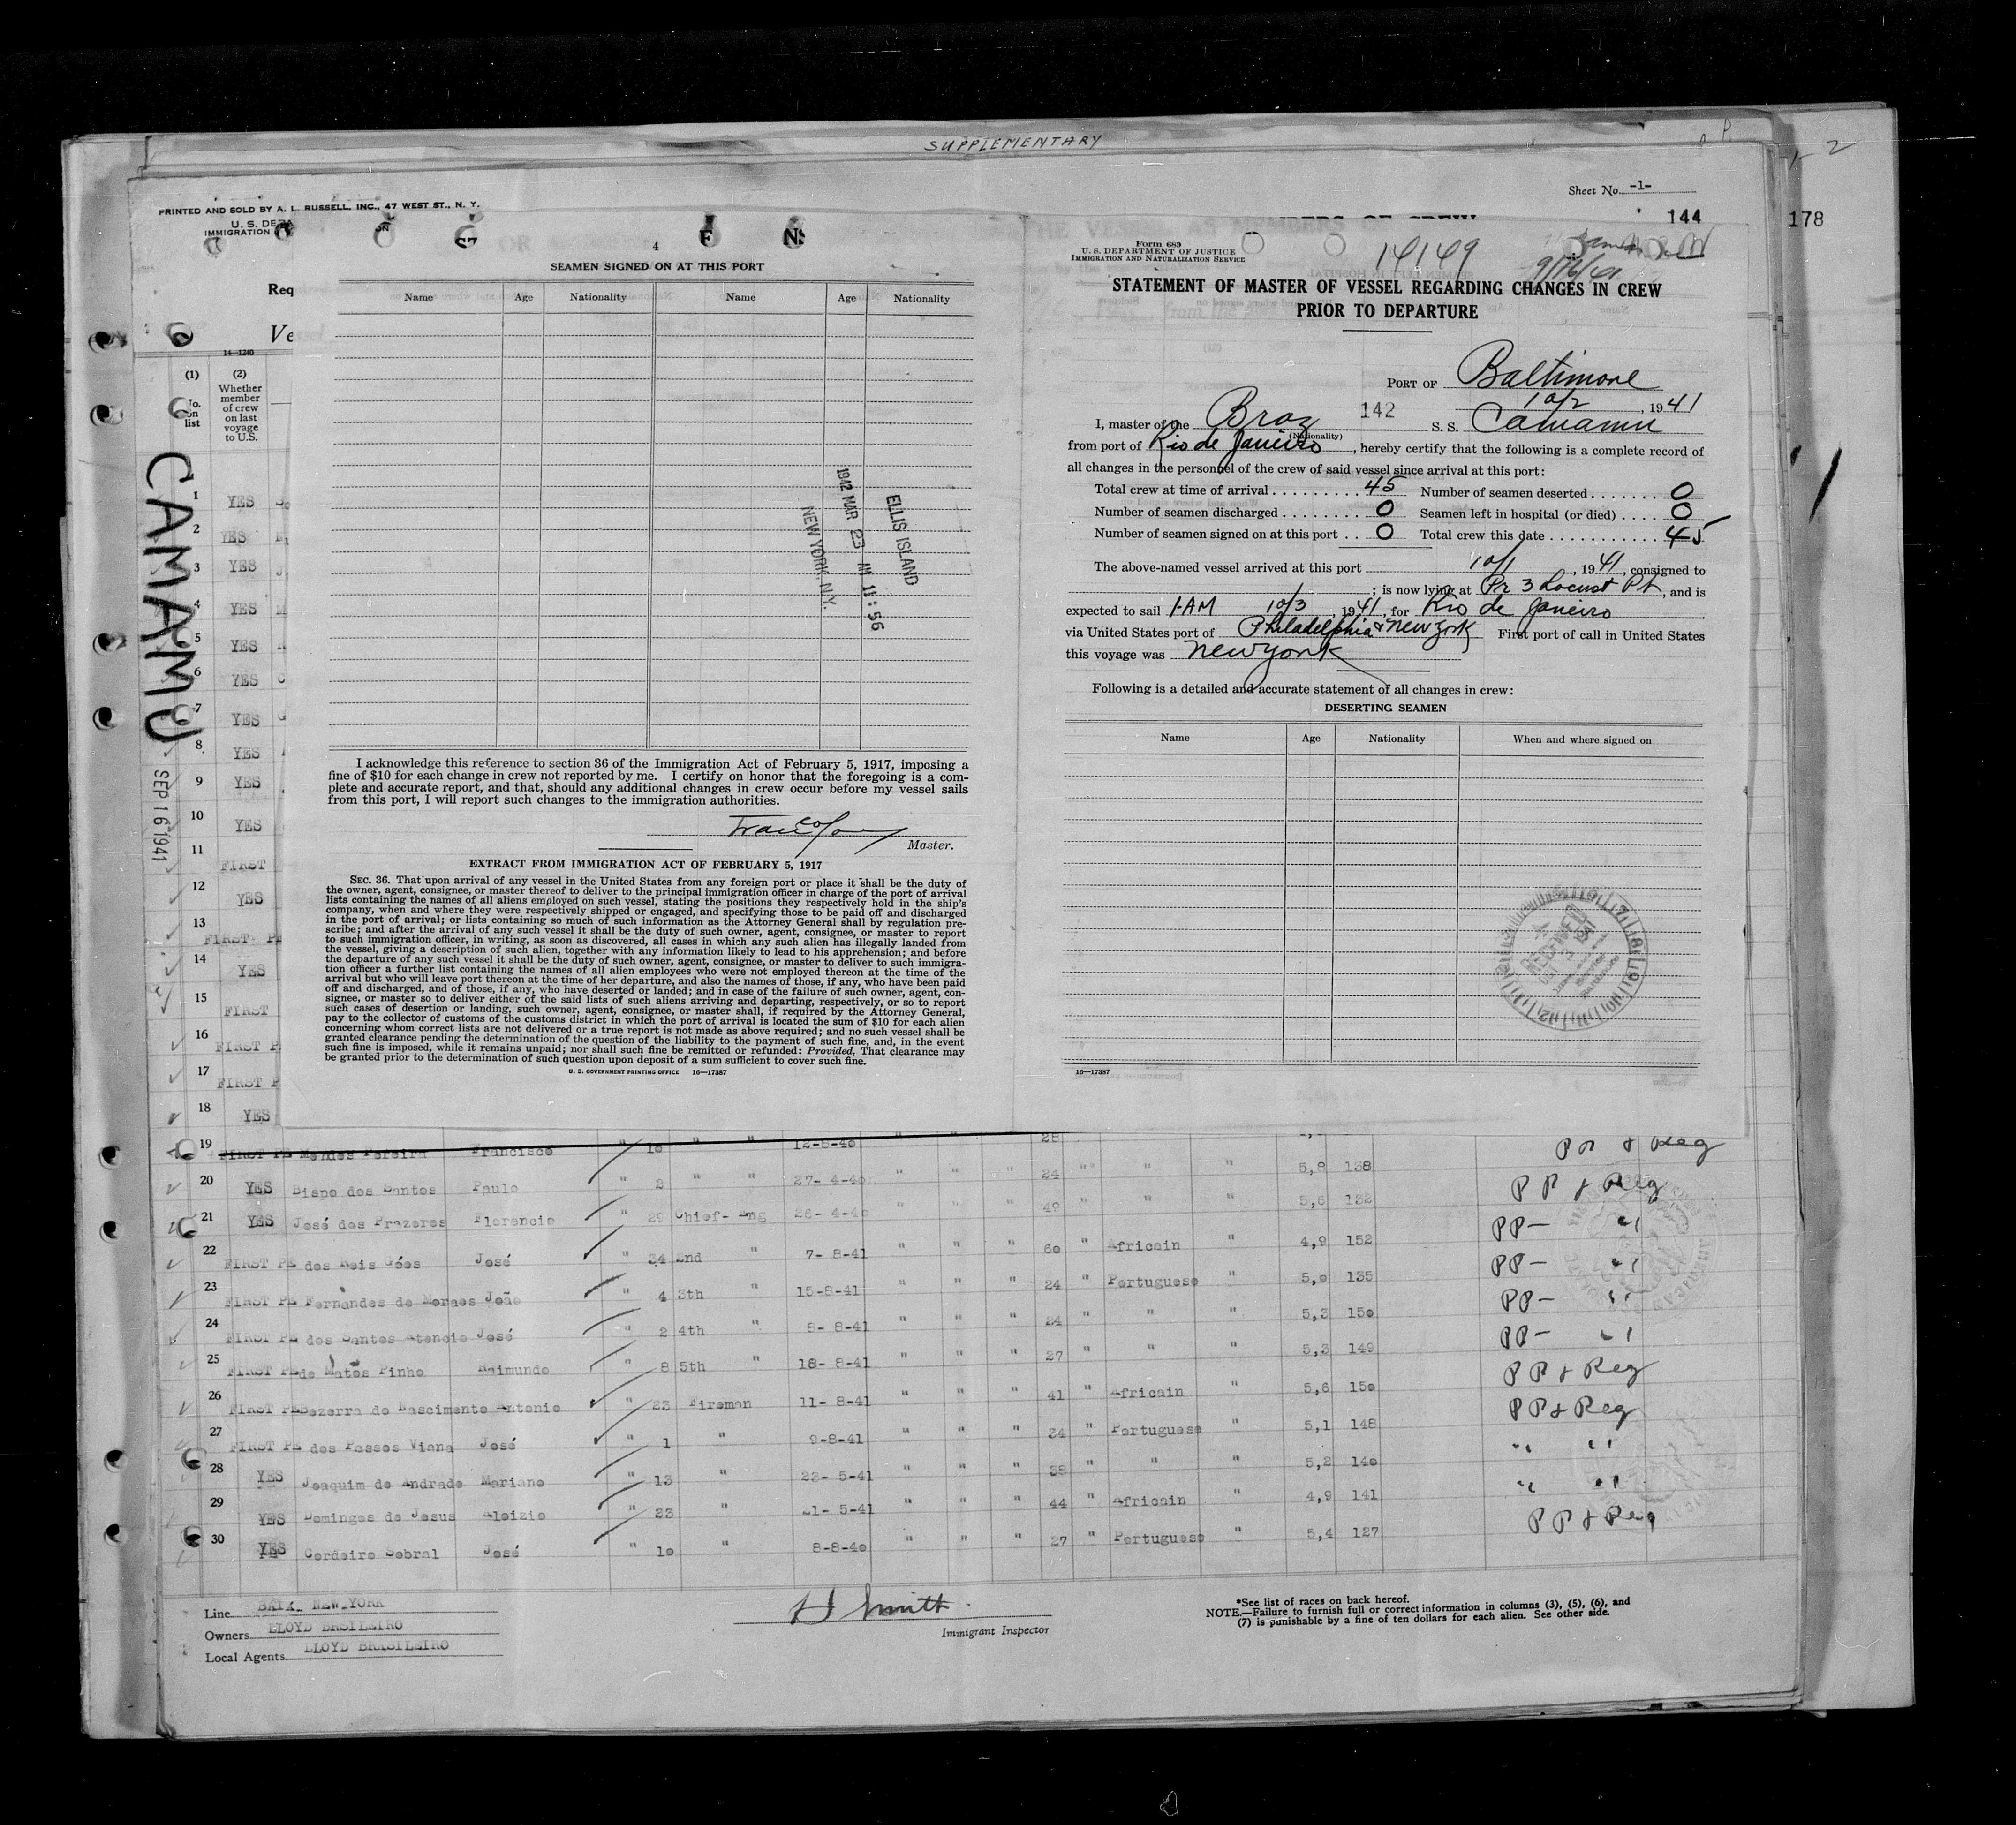 SUPPLEMENTARY
2
Sheet No. -1-
PRINTED AND SOLD BY A. L. RUSSELL, INC., 47 WEST ST., N. Y.
144
178
U. S. DE
IMMIGRATION
Req
Ve
14-1240
(1)
(2)
Whether
member
of crew
on last
voyage
to U.S.
No.
on
list
CAMAMU
SEP 16 1941
4
SEAMEN SIGNED ON AT THIS PORT
Name Age Nationality Name Age Nationality
ELLIS ISLAND
1942 MAR 23 AM 11:56
NEW YORK, N.Y.
I acknowledge this reference to section 36 of the Immigration Act of February 5, 1917, imposing a
fine of $10 for each change in crew not reported by me. I certify on honor that the foregoing is a com-
plete and accurate report, and that, should any additional changes in crew occur before my vessel sails
from this port, I will report such changes to the immigration authorities.
Master.
EXTRACT FROM IMMIGRATION ACT OF FEBRUARY 5, 1917
SEC. 36. That upon arrival of any vessel in the United States from any foreign port or place it shall be the duty of
the owner, agent, consignee, or master thereof to deliver to the principal immigration officer in charge of the port of arrival
lists containing the names of all aliens employed on such vessel, stating the positions they respectively hold in the ship's
company, when and where they were respectively shipped or engaged, and specifying those to be paid off and discharged
in the port of arrival; or lists containing so much of such information as the Attorney General shall by regulation pre-
scribe; and after the arrival of any such vessel it shall be the duty of such owner, agent, consignee, or master to report
to such immigration officer, in writing, as soon as discovered, all cases in which any such alien has illegally landed from
the vessel, giving a description of such alien, together with any information likely to lead to his apprehension; and before
the departure of any such vessel it shall be the duty of such owner, agent, consignee, or master to deliver to such immigra-
tion officer a further list containing the names of all alien employees who were not employed thereon at the time of the
arrival but who will leave port thereon at the time of her departure, and also the names of those, if any, who have been paid
off and discharged, and of those, if any, who have deserted or landed; and in case of the failure of such owner, agent, con-
signee, or master so to deliver either of the said lists of such aliens arriving and departing, respectively, or so to report
such cases of desertion or landing, such owner, agent, consignee, or master shall, if required by the Attorney General,
pay to the collector of customs of the customs district in which the port of arrival is located the sum of $10 for each alien
concerning whom correct lists are not delivered or a true report is not made as above required; and no such vessel shall be
granted clearance pending the determination of the question of the liability to the payment of such fine, and, in the event
such fine is imposed, while it remains unpaid; nor shall such fine be remitted or refunded: Provided, That clearance may
be granted prior to the determination of such question upon deposit of a sum sufficient to cover such fine.
U. S. GOVERNMENT PRINTING OFFICE 16-17387
Form 689
U. S. DEPARTMENT OF JUSTICE
IMMIGRATION AND NATURALIZATION SERVICE
14149
9/16/41
STATEMENT OF MASTER OF VESSEL REGARDING CHANGES IN CREW
PRIOR TO DEPARTURE
PORT OF Baltimore
10/2, 1941
I, master of the Braz 142 S. S. Camamu
(Nationality)
from port of Rio de Janeiro, hereby certify that the following is a complete record of
all changes in the personnel of the crew of said vessel since arrival at this port:
Total crew at time of arrival 45 Number of seamen deserted 0
Number of seamen discharged 0 Seamen left in hospital (or died) 0
Number of seamen signed on at this port 0 Total crew this date 45
The above-named vessel arrived at this port 10/1, 1941, consigned to
; is now lying at Pr 3 Locust Pt, and is
expected to sail 1 AM 10/3, 1941, for Rio de Janeiro
via United States port of Philadelphia & New York First port of call in United States
this voyage was New York
Following is a detailed and accurate statement of all changes in crew:
DESERTING SEAMEN
Name Age Nationality When and where signed on
16-17387
1 YES
2 YES
3 YES
4 YES
5 YES
6 YES
7 YES
8 YES
9 YES
10 YES
11 FIRST
12 YES
13 FIRST PE
14 YES
15 FIRST
16 FIRST P
17 FIRST P
18 YES
19 FIRST PE Mendes Pereira Francisco " 10 " " 12-8-40 " " 28 PP & Reg
20 YES Bispo dos Santos Paulo " 2 " " 27- 4-40 " " " 24 " " " 5,8 138 PP & Reg
21 YES José dos Prazeres Florencio " 29 Chief- Eng 26- 4-40 " " " 49 " " " 5,6 132 PP- "
22 FIRST PE dos Reis Góes José " 34 2nd " 7- 8-41 " " " 60 " Africain " 4,9 152 PP- "
23 FIRST PE Fernandes de Moraes João " 4 3th " 15-8-41 " " " 24 " Portuguese " 5,0 135 PP- "
24 FIRST PE dos Santos Atencio José " 2 4th " 8- 8-41 " " " 24 " " " 5,3 150 PP- "
25 FIRST PE de Matos Pinho Raimundo " 8 5th " 18- 8-41 " " " 27 " " " 5,3 149 PP & Reg
26 FIRST PE Bezerra do Nascimento Antonio " 23 Fireman 11- 8-41 " " " 41 " Africain " 5,6 150 PP & Reg
27 FIRST PE dos Passos Viana José " 1 " 9-8-41 " " " 34 " Portuguese " 5,1 148 " "
28 YES Joaquim de Andrade Mariano " 13 " 23- 5-41 " " " 38 " " " 5,2 140 " "
29 YES Domingos de Jesus Aloizio " 23 " 21- 5-41 " " " 44 " Africain " 4,9 141 PP & Reg
30 YES Cordeiro Sobral José " 10 " 8-8-40 " " " 27 " Portuguese " 5,4 127
Line BAIA- NEW-YORK
Owners LLOYD BRSILEIRO
Local Agents LLOYD BRASILEIRO
H Smith
Immigrant Inspector
*See list of races on back hereof.
NOTE.—Failure to furnish full or correct information in columns (3), (5), (6), and
(7) is punishable by a fine of ten dollars for each alien. See other side.